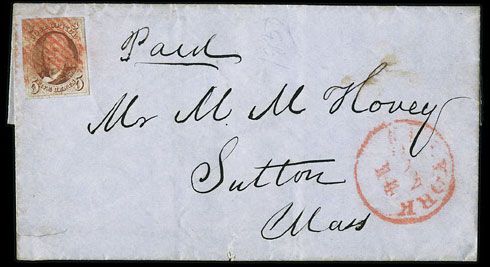 Paid
Mr M. M Hovey
Sutton
Mass
YORK